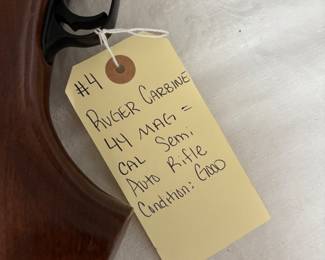 #4
RUGER CARBINE
44 MAG =
CAL SEMi,
AUTO RiFlE
CONdition: GOOD